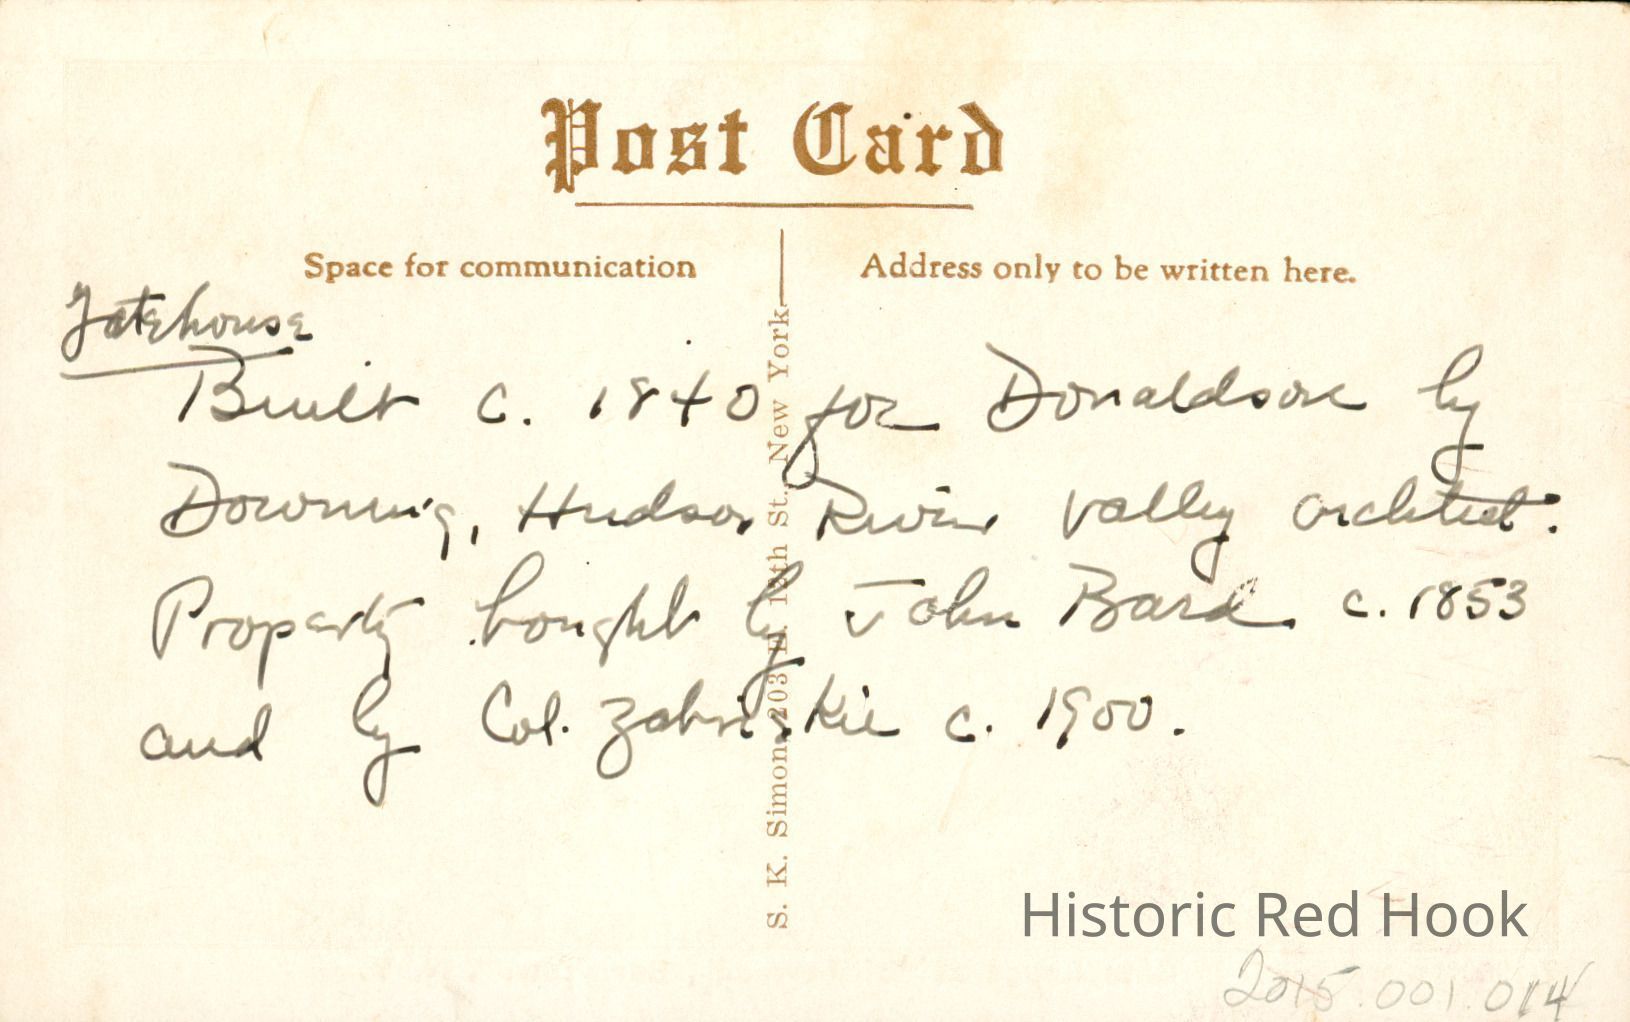 Post Card
Space for communication
Address only to be written here.
Gatehouse
Built c. 1840 for Donaldson by
Downing, Hudson River Valley architect.
Property bought by John Bard c. 1853
and by Col. Zabriskie c. 1900.
S. K. Simon, 203 E. 18th St., New York
Historic Red Hook
2015.001.014